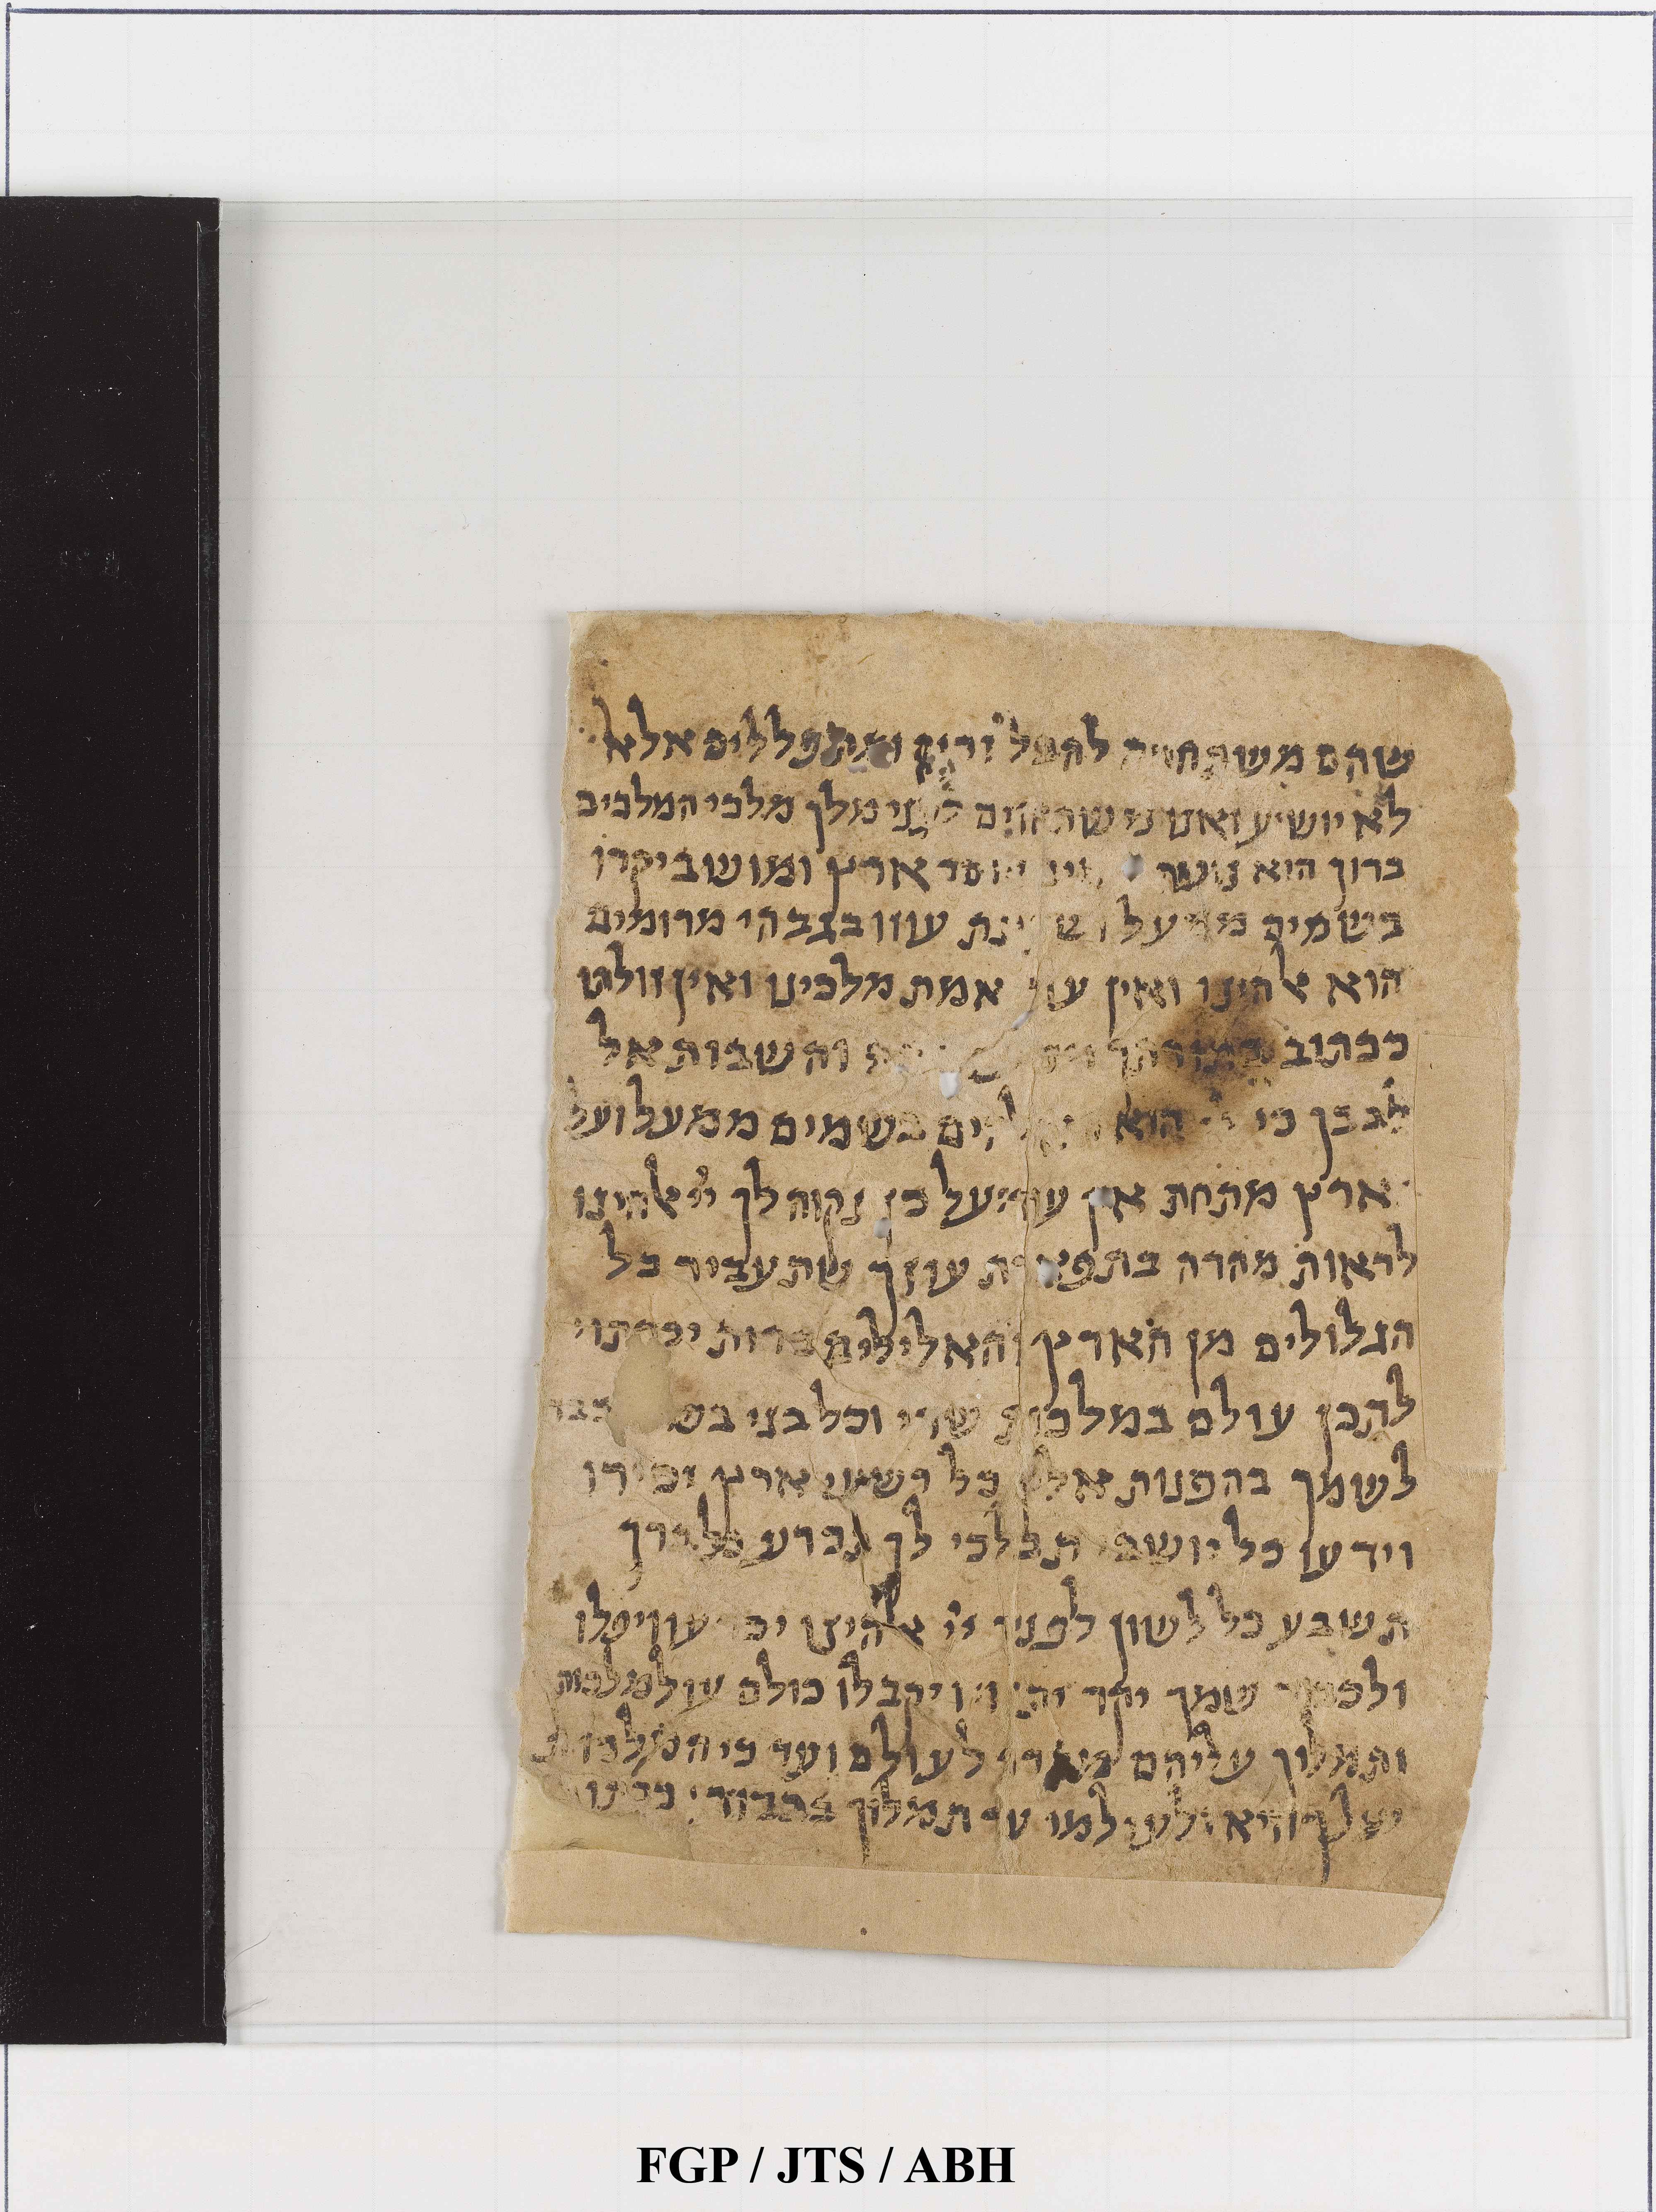 שהם משתחוים להבל וריק ומתפללים אל לא
לא יושיע ואנו משתחוים לפני מלך מלכי המלכים
ברוך הוא ארץ ומושב יקרו
בשמים ממעל עוזו בגבהי מרומים
הוא אלהינו ואין עוד אמת מלכינו ואין זולתו
ככתוב בתורתך והשבות אל
לבבך כי הוא בשמים ממעל ועל
ארץ מתחת אין עוד על כן נקוה לך ייי אלהינו
לראות מהרה בתפארת עוזך שתעביר כל
הגלולים מן הארץ והאלילים כרות יכרתון
לתכן עולם במלכות שדי וכל בני
לשמך בהפנות אליך כל רשעי ארץ יכירו
וידעו כל יושבי תבל כי לך תכרע כל ברך
תשבע כל לשון לפניך ייי אלהינו יכרעו ויפלו
ולכבוד שמך יקר יתנו ויקבלו כולם עול מלכות
ותמלוך עליהם לעולם ועד כי המלכות
שלך היא ולעולמי עד תמלוך בכבוד
FGP / JTS / ABH